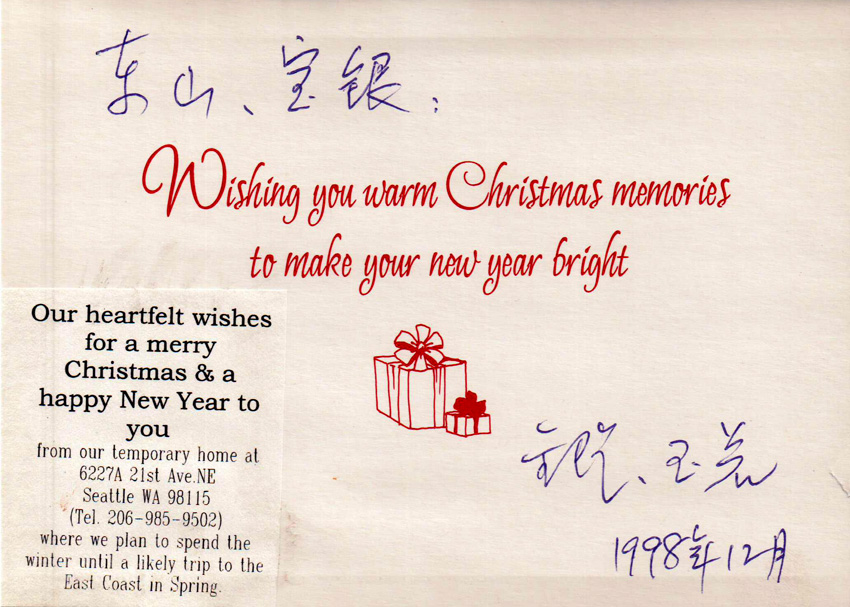 东山、宝银:
Wishing you warm Christmas memories
to make your new year bright
Our heartfelt wishes
for a merry
Christmas & a
happy New Year to
you
from our temporary home at
6227A 21st Ave.NE
Seattle WA 98115
(Tel. 206-985-9502)
where we plan to spend the
winter until a likely trip to the
East Coast in Spring.
1998年12月